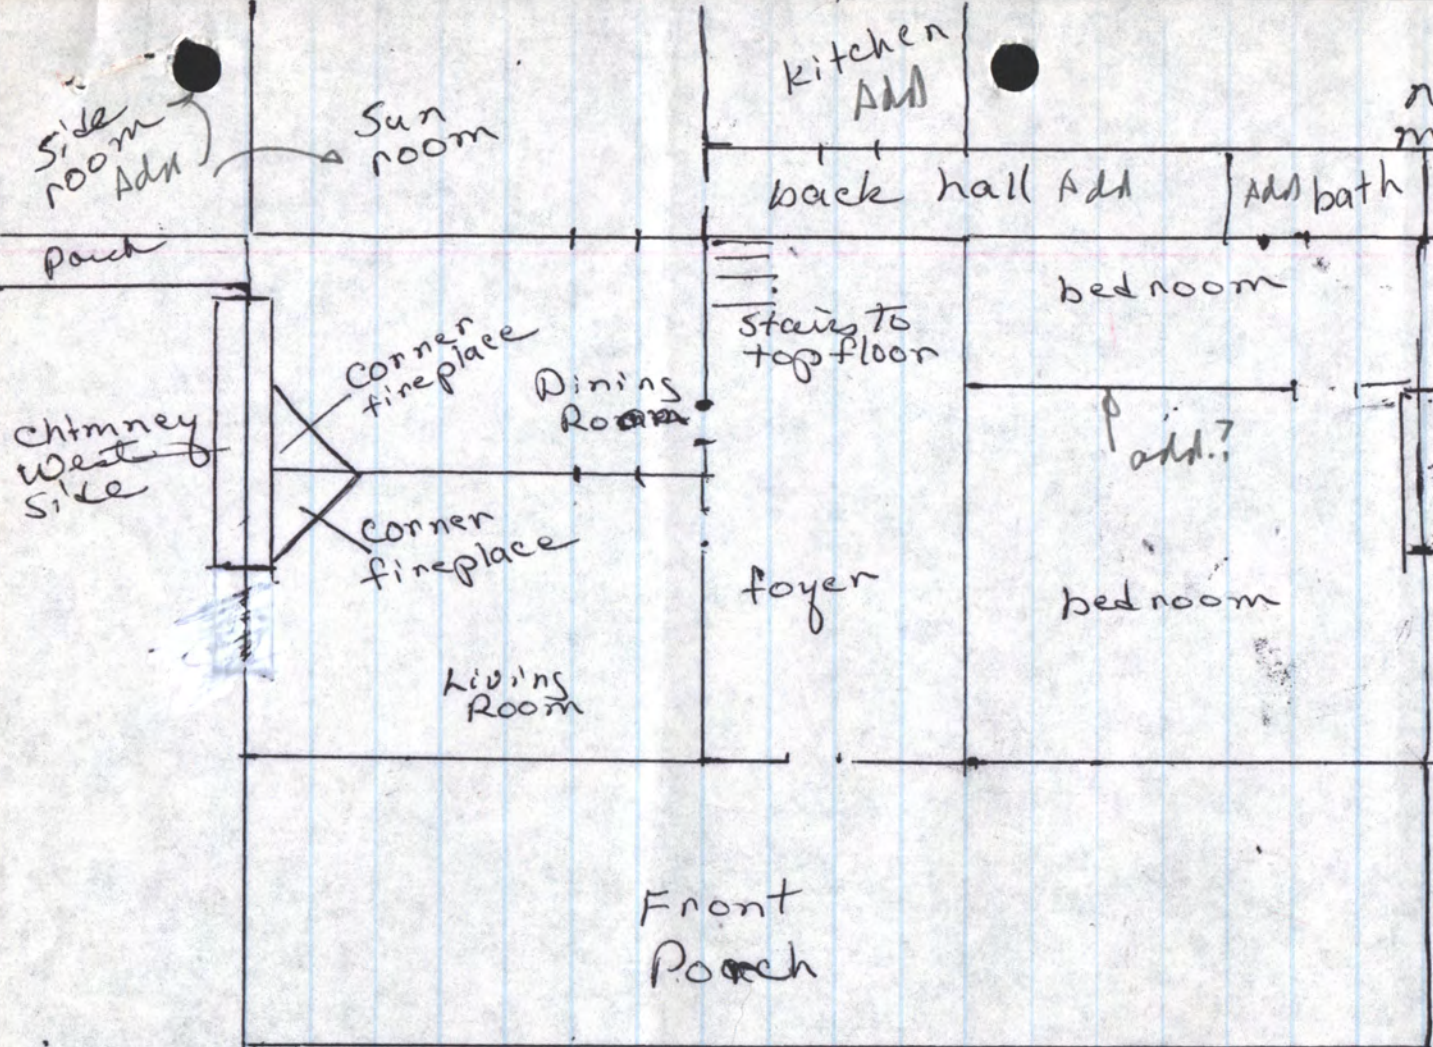 kitchen
Add
Side
room
Add
Sun
room
back hall Add
Add bath
porch
bedroom
Stairs to
top floor
corner
fireplace
Dining
Room
chimney
West
Side
add.?
corner
fireplace
foyer
bedroom
Living
Room
Front
Porch